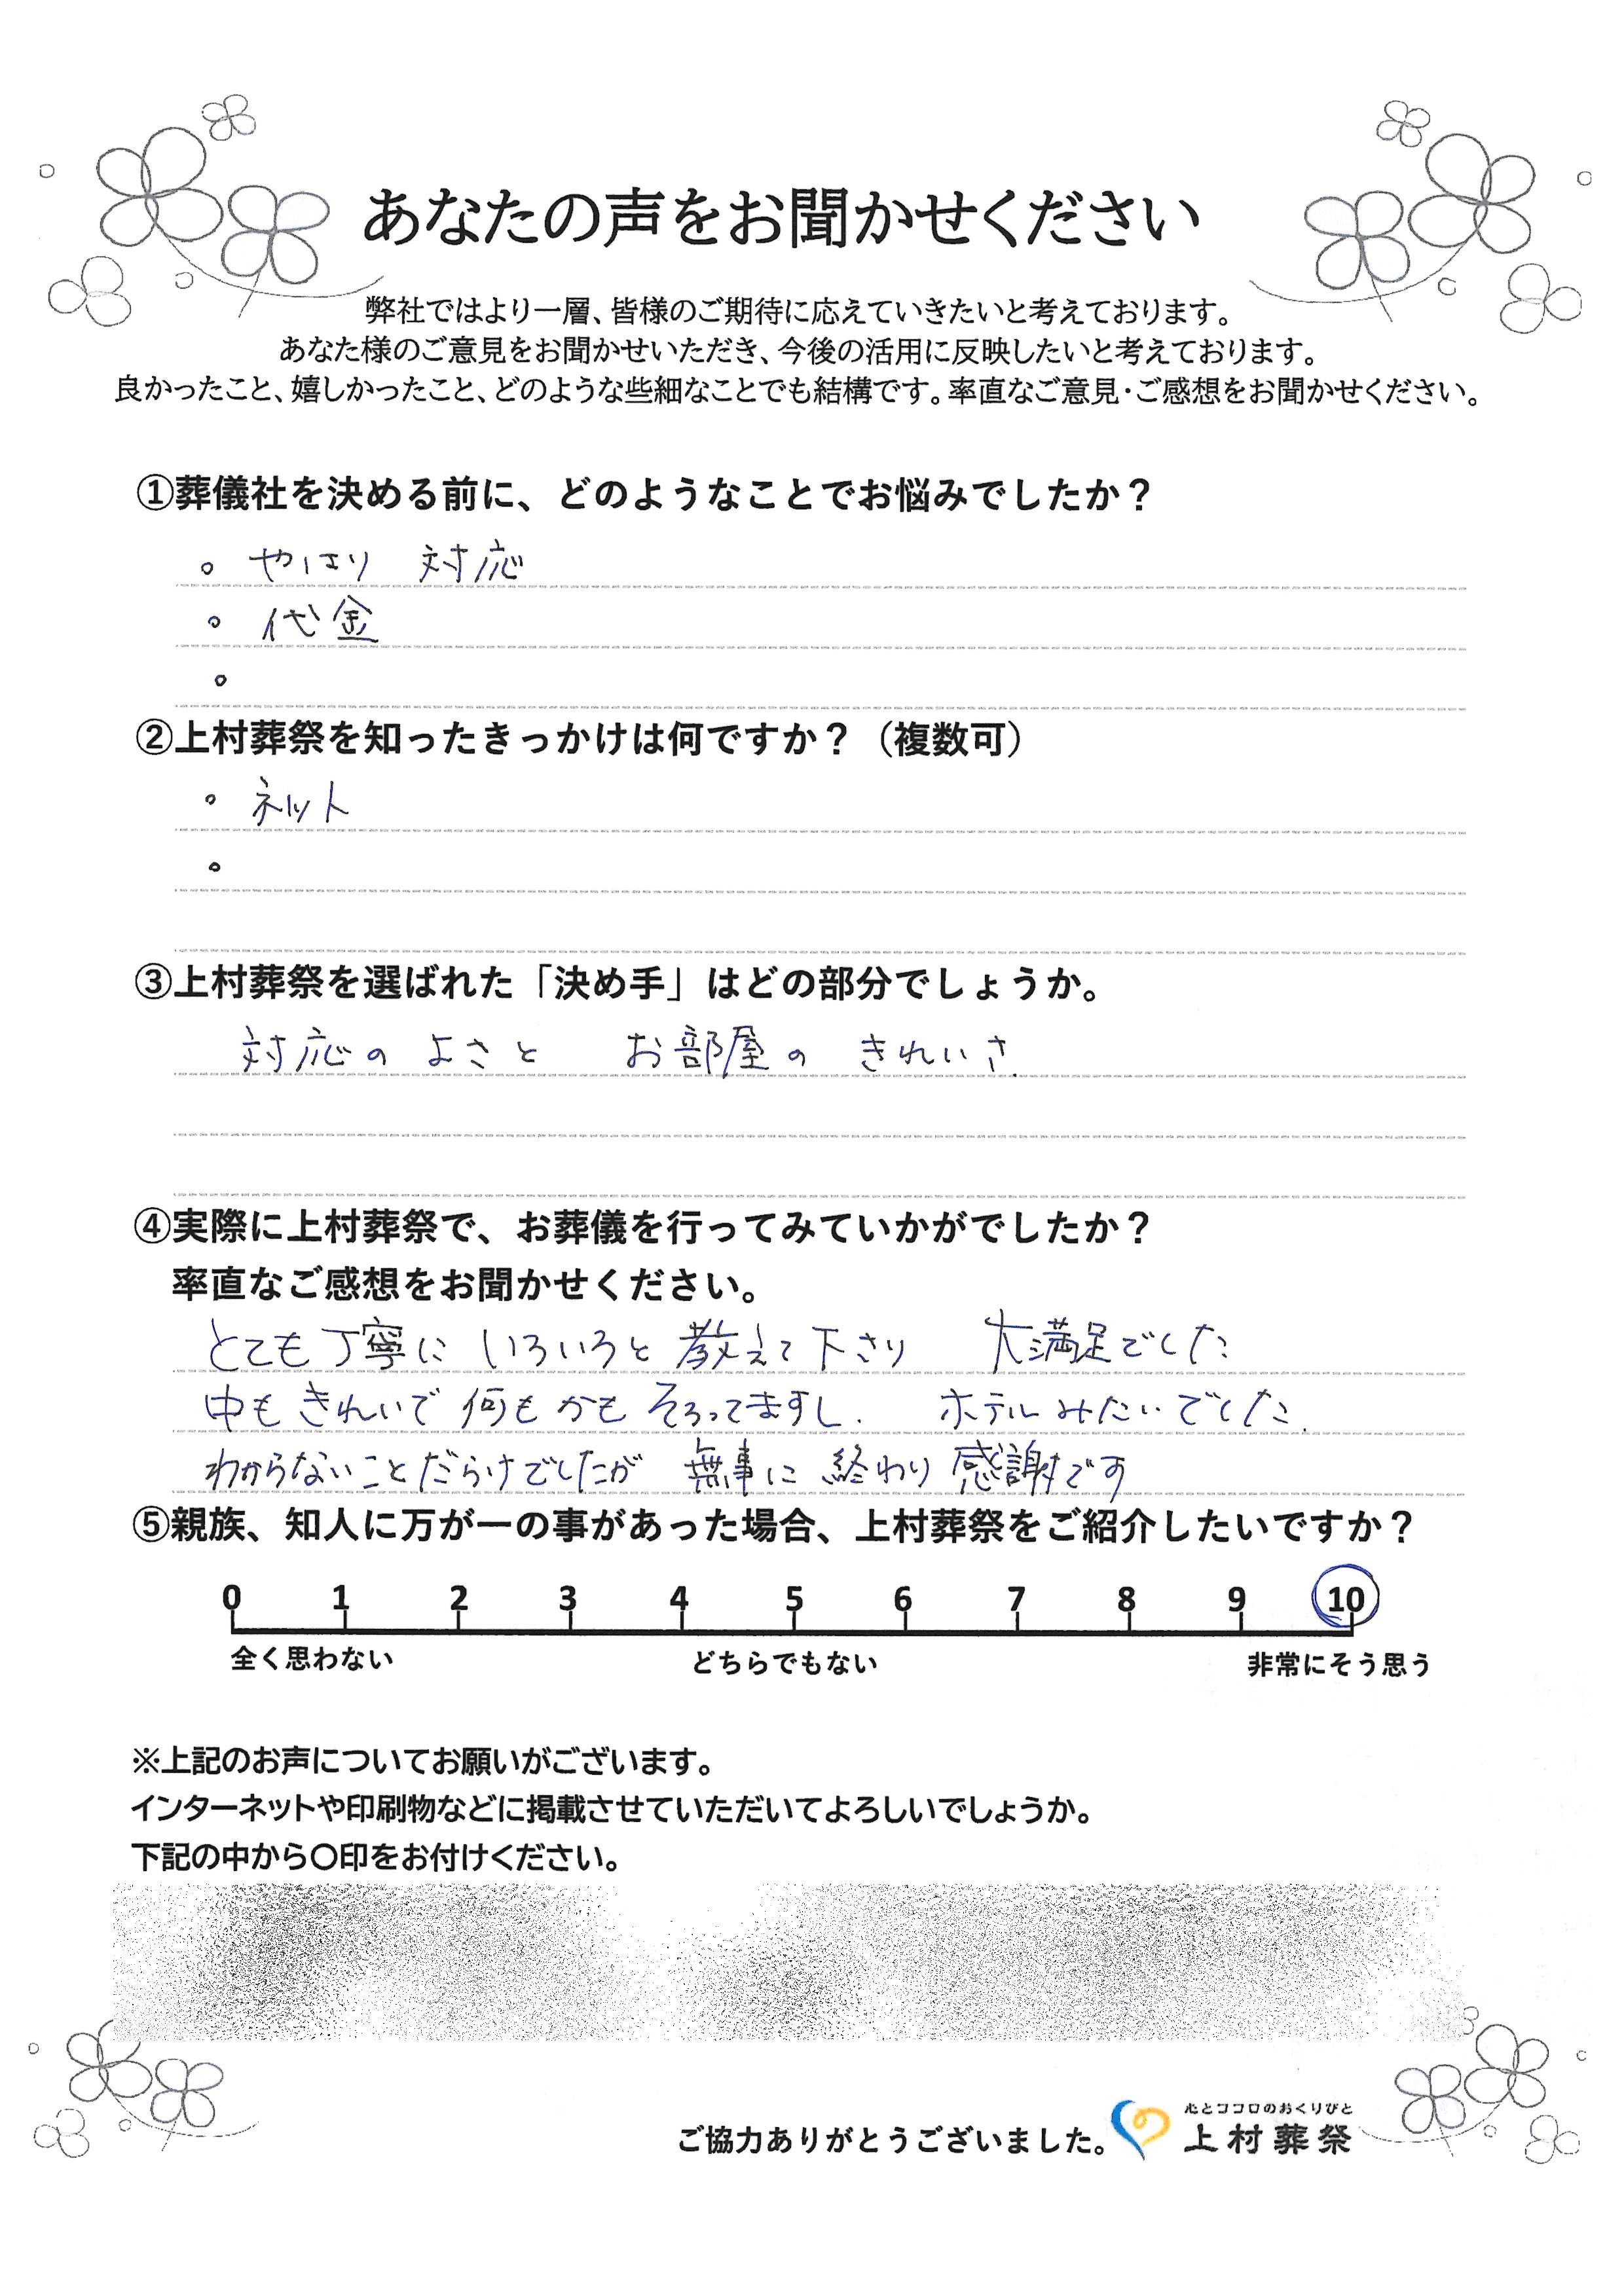 あなたの声をお聞かせください
弊社ではより一層、皆様のご期待に応えていきたいと考えております。
あなた様のご意見をお聞かせいただき、今後の活用に反映したいと考えております。
良かったこと、嬉しかったこと、どのような些細なことでも結構です。率直なご意見・ご感想をお聞かせください。
①葬儀社を決める前に、どのようなことでお悩みでしたか？
。やはり 対応
。代金
。
②上村葬祭を知ったきっかけは何ですか？（複数可）
。ネット
。
③上村葬祭を選ばれた「決め手」はどの部分でしょうか。
対応の よさと お部屋の きれいさ.
④実際に上村葬祭で、お葬儀を行ってみていかがでしたか？
率直なご感想をお聞かせください。
とても丁寧に いろいろと 教えて下さり 大満足でした
中も きれいで 何もかも そろってますし. ホテルみたいでした.
わからないことだらけでしたが 無事に 終わり 感謝です
⑤親族、知人に万が一の事があった場合、上村葬祭をご紹介したいですか？
0 1 2 3 4 5 6 7 8 9 10
全く思わない どちらでもない 非常にそう思う
※上記のお声についてお願いがございます。
インターネットや印刷物などに掲載させていただいてよろしいでしょうか。
下記の中から〇印をお付けください。
心とココロのおくりびと
ご協力ありがとうございました。 上村葬祭